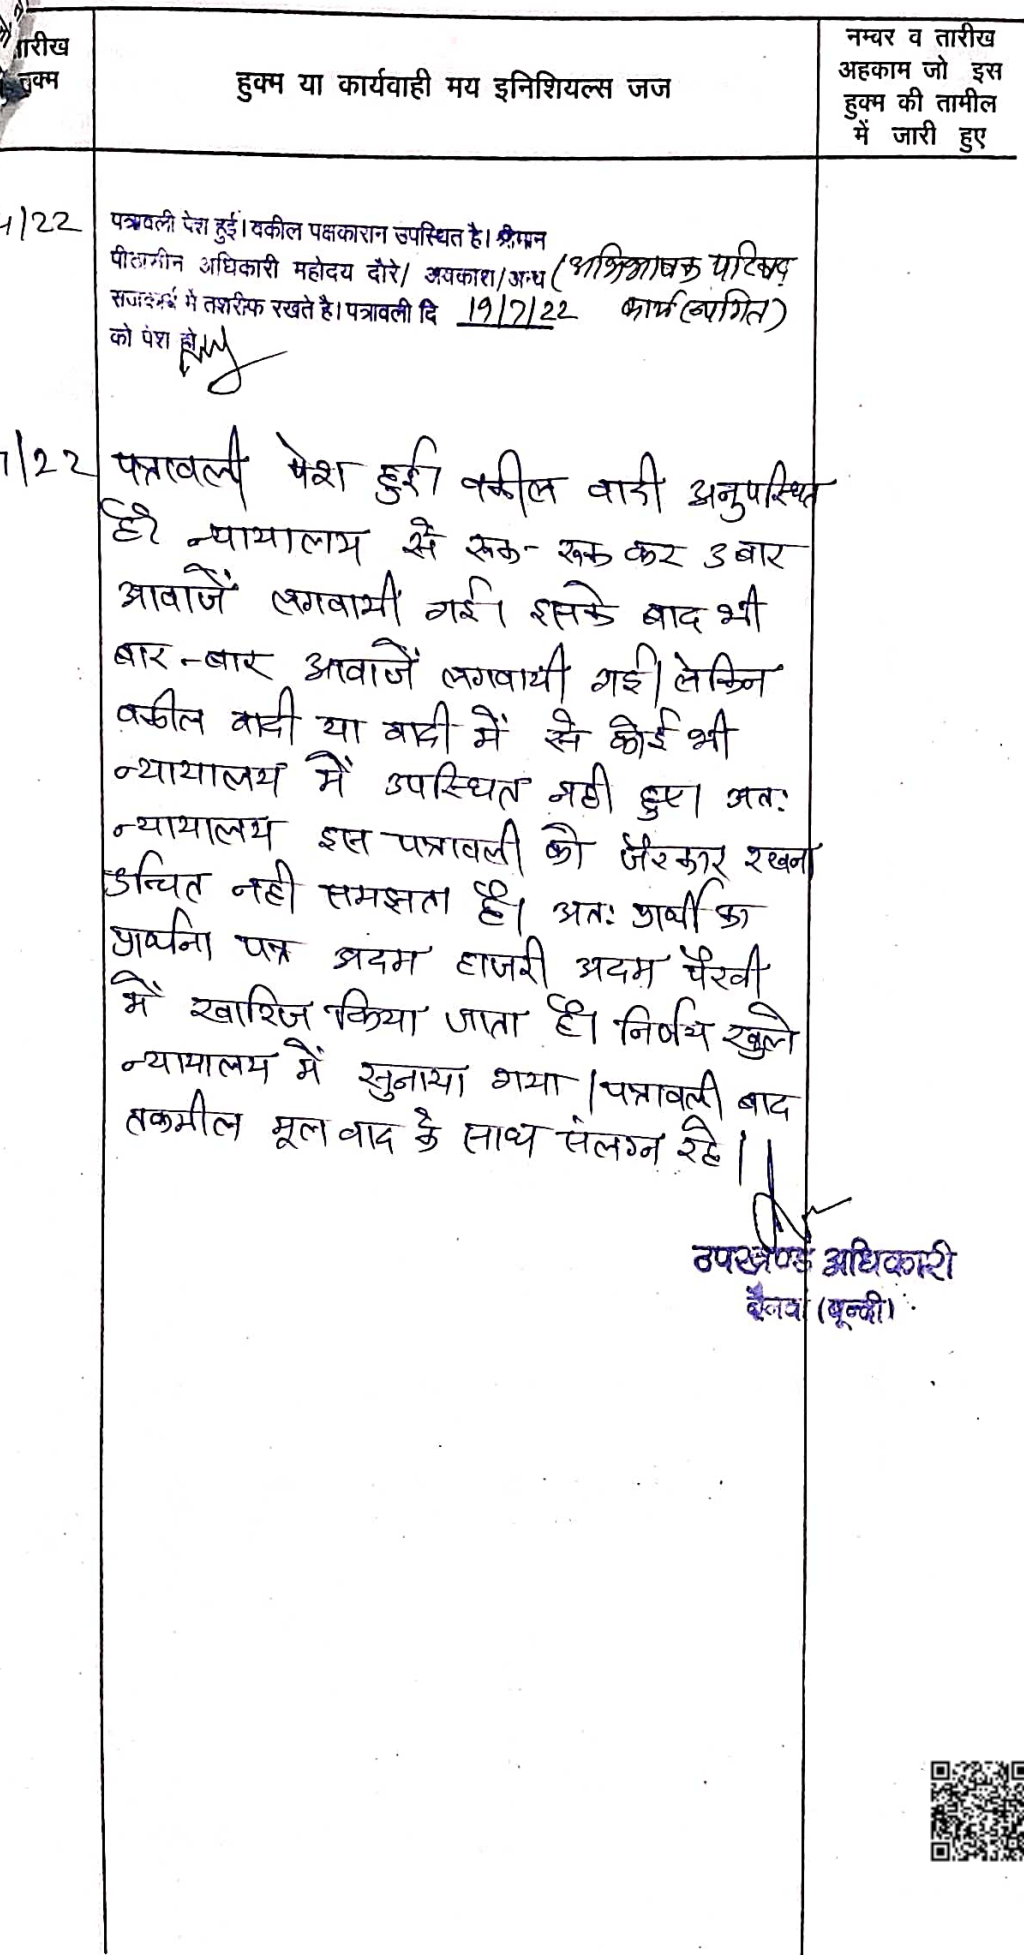 तारीख
हुक्म
हुक्म या कार्यवाही मय इनिशियल्स जज
नम्बर व तारीख
अहकाम जो इस
हुक्म की तामील
में जारी हुए
4/22
पत्रावली पेश हुई। वकील पक्षकारान उपस्थित है। श्रीमान
पीठासीन अधिकारी महोदय दौरे/ अवकाश/अन्य (अभिभाषक परिषद्
राजकार्य में तशरीफ रखते है। पत्रावली दि 19/7/22 कार्य स्थगित)
को पेश हो
7/22
पत्रावली पेश हुई। वकील वादी अनुपस्थित
है। न्यायालय से रूक-रूक कर 3 बार
आवाजें लगवायी गई। इसके बाद भी
बार-बार आवाजें लगवायी गई। लेकिन
वकील वादी या वादी में से कोई भी
न्यायालय में उपस्थित नही हुए। अतः
न्यायालय इस पत्रावली को जैरकार रखना
उचित नही समझता है। अतः प्रार्थी का
प्रार्थना पत्र अदम हाजरी अदम पैरवी
में खारिज किया जाता है। निर्णय खुले
न्यायालय में सुनाया गया। पत्रावली बाद
तकमील मूल वाद के साथ संलग्न रहे।
उपखण्ड अधिकारी
नैनवां (बून्दी)